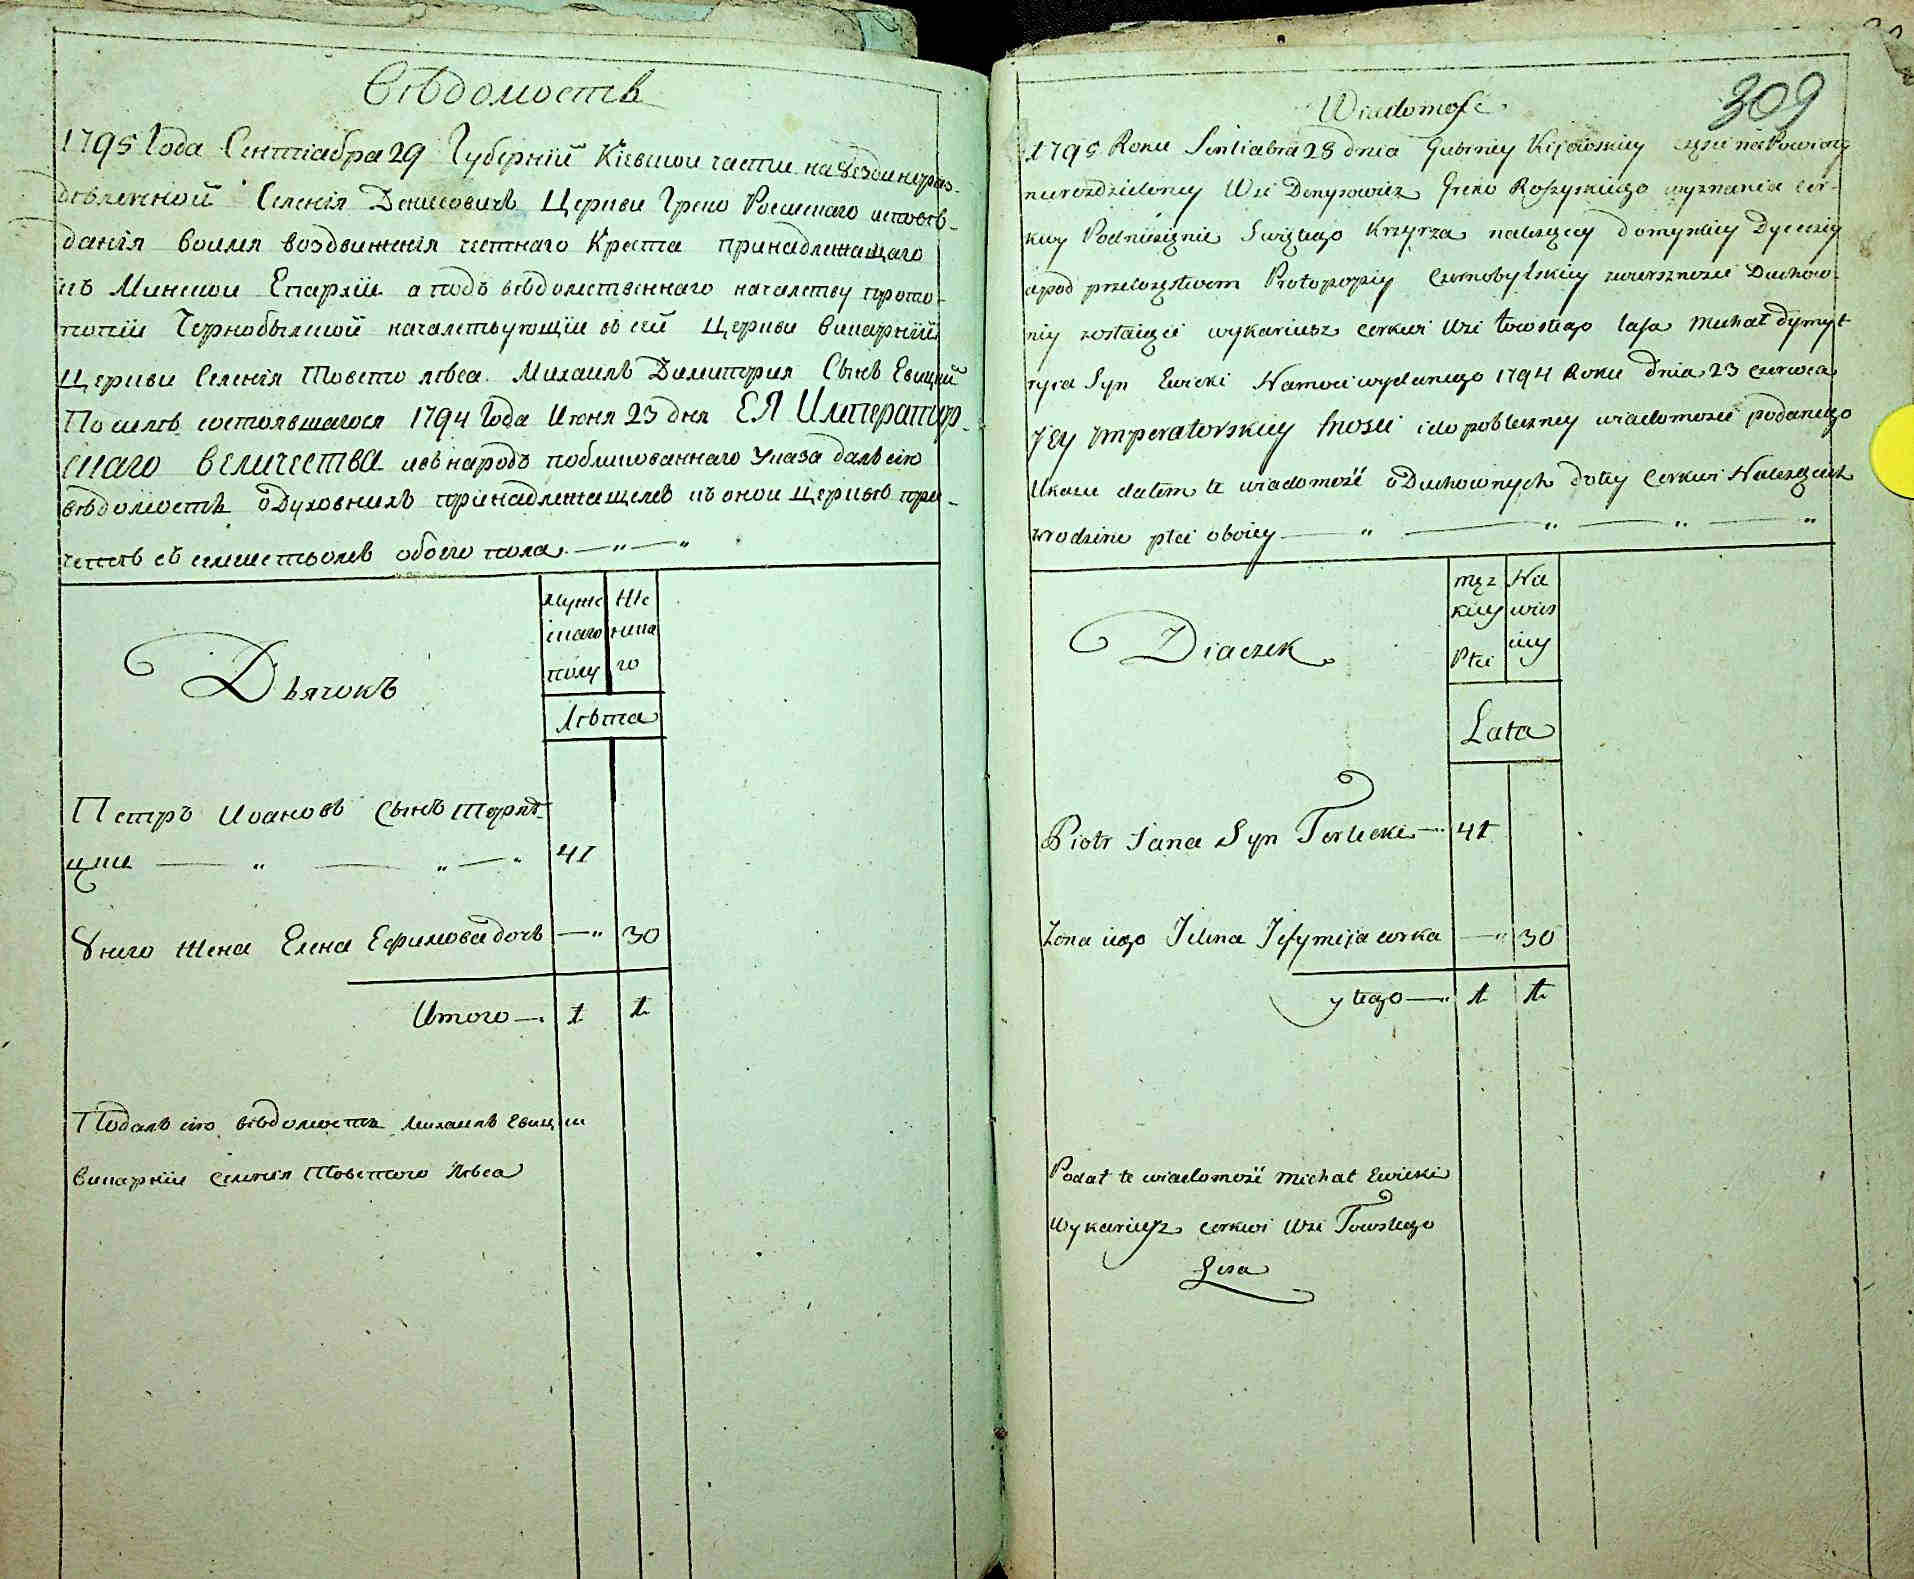 Вѣдомость
1795 Года Сентіабра 29 Губерніи Кіевскои части на Уезди нераз-
дѣленной Селенія Денисовичь Церкви Греко Россискаго исповѣ-
данія воимя воздвиженія честнаго Креста принадлежащаго
къ Минскои Епархіи а подъ вѣдомственнаго началству прото-
попіи Чернобылской началствующіи въ сей Церкви викарніи
Церкви Селенія Товстого лѣса Михаилъ Димитрия Сынъ Евицкий
По силѣ состоявшагося 1794 Года Июня 23 дня ЕЯ Император-
скаго ВЕЛИЧЕСТВА и въ народъ публикованнаго Указа далъ сию
вѣдомость о Духовнихъ принадлежащихъ къ онои церквѣ при-
четѣ съ семействомъ обоего пола — „ — „
Дьячокъ
мужескаго полу
Женскаго
Лѣта
Петръ Ивановъ Сынъ Терле-
цкии — „ — „ — „ 41
У него Жена Елена Ефимова дочь — „ 30
Итого — . 1 1
Подалъ сию вѣдомость Михаилъ Евицкии
викарніи селенія Товстого Лѣса
309
Wiadomosć
1795 Roku Sentiabra 28 dnia Gubernij Kijowskiey części na Powiaty
nierozdzieloney Wsi Denysowicz Greko Roszyskiego wyznania cer-
kwy Podniesienie Swiętego Krzyża należący do mynskiey Dyecezii
a pod przełozęstwem Protopopiy Czernobylskiey zwierznosci Duchow-
niy zostaiące wykariusz cerkwi Wsi towstego lasa Michał dymyt
ryia Syn Ewicki Namoci wydanego 1794 Roku dnia 23 czerwca
Jey Jmperatorskiey Mosci i do publiczney wiadomosci podanego
Ukazu datem te wiadomość o Duchownych do tey Cerkwi Należących
z rodzine płci oboiey — „ — „ — „ — „
Diaczek
męzkiey Płci
Niewiesciey
Lata
Piotr Jana Syn Terlecki — „ 41
Zona iego Jelena Jefymija corka — „ 30
y tego — „ 1 1
Podał te wiadomość Michał Ewicki
Wykariusz cerkwi Wsi Towstego
Lesa